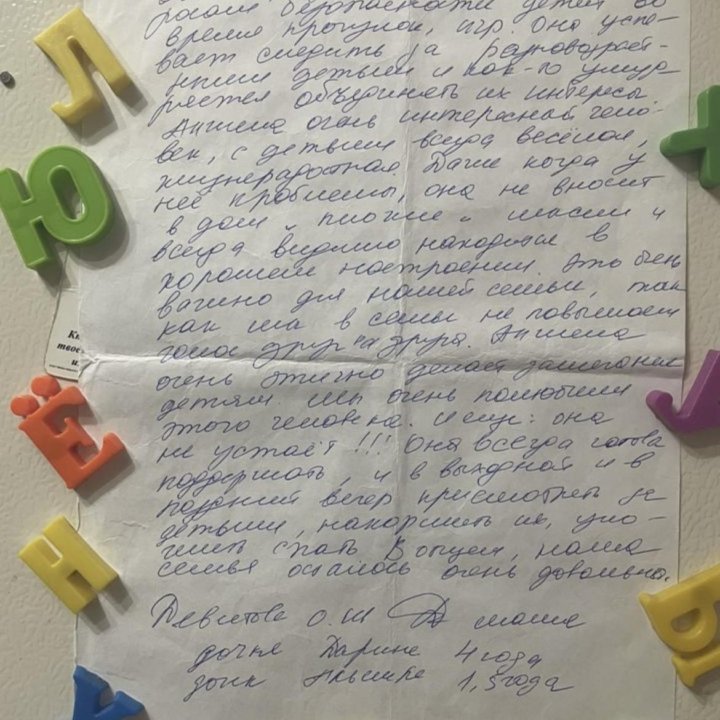 время прогулок, игр. Она успе-
вает следить за разновозраст-
ными детьми и как-то умуд-
ряется объединять их интересы.
Анжела очень интересный чело-
век, с детьми всегда весёлая,
жизнерадостная. Даже когда у
неё проблемы, она не вносит
в дом и
всегда видимо находится в
хорошем настроении. Это очень
важно для нашей семьи, так
как мы в семье не повышаем
голос друг на друга. Анжела
очень этично делает замечания
детям. Мы очень полюбили
этого человека. И ещё: она
не устаёт!!! Она всегда готова
поддержать, и в выходной и в
поздний вечер присмотреть за
детьми, накормить их, уло-
жить спать. В общем, наша
семья осталась очень довольна.
О.Ш маме
дочке Дарине 4 года
1,5 года
Л
Ю
Ё
Н
У
Х
У
Ы